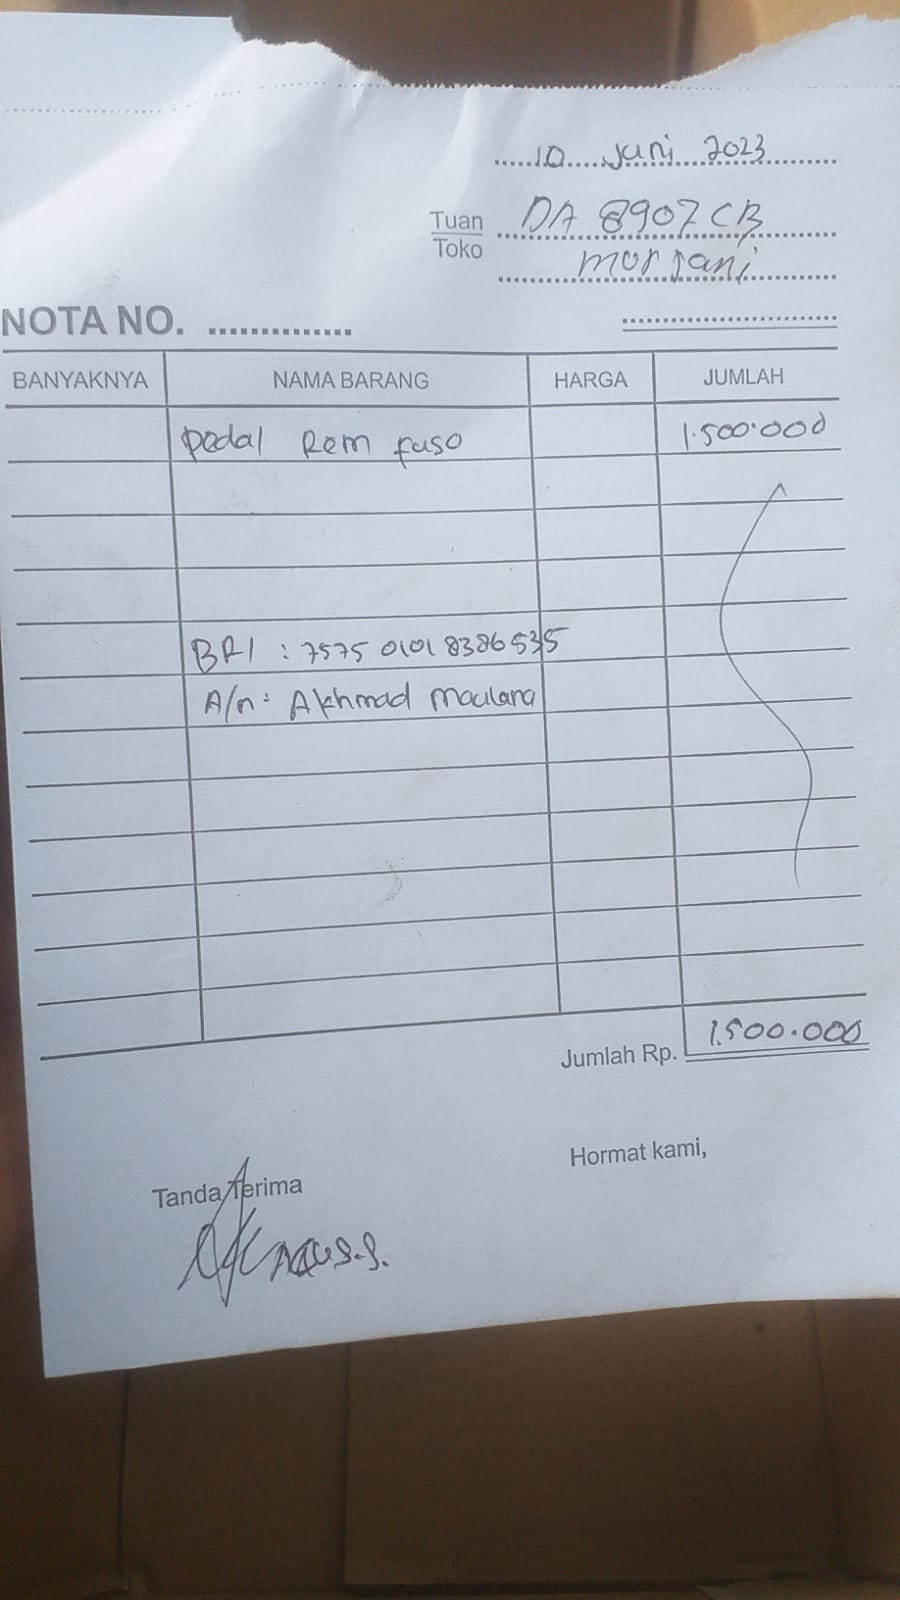 10 Juni 2023
Tuan DA 8907 CB
Toko murjani
NOTA NO.
BANYAKNYA NAMA BARANG HARGA JUMLAH
pedal Rem fuso 1.500.000
BRI : 7575 0101 8386 535
A/n : Akhmad maulana
Jumlah Rp. 1.500.000
Hormat kami,
Tanda Terima